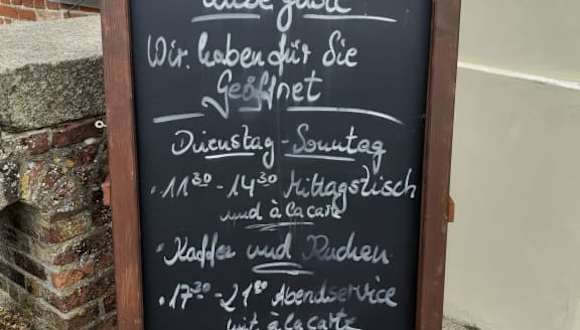 Liebe Gäste
Wir haben für Sie
Geöffnet
Dienstag - Sonntag
• 11³⁰ - 14³⁰ Mittagstisch
und à la carte
• Kaffee und Kuchen
• 17³⁰ - 21⁰⁰ Abendservice
mit à la carte